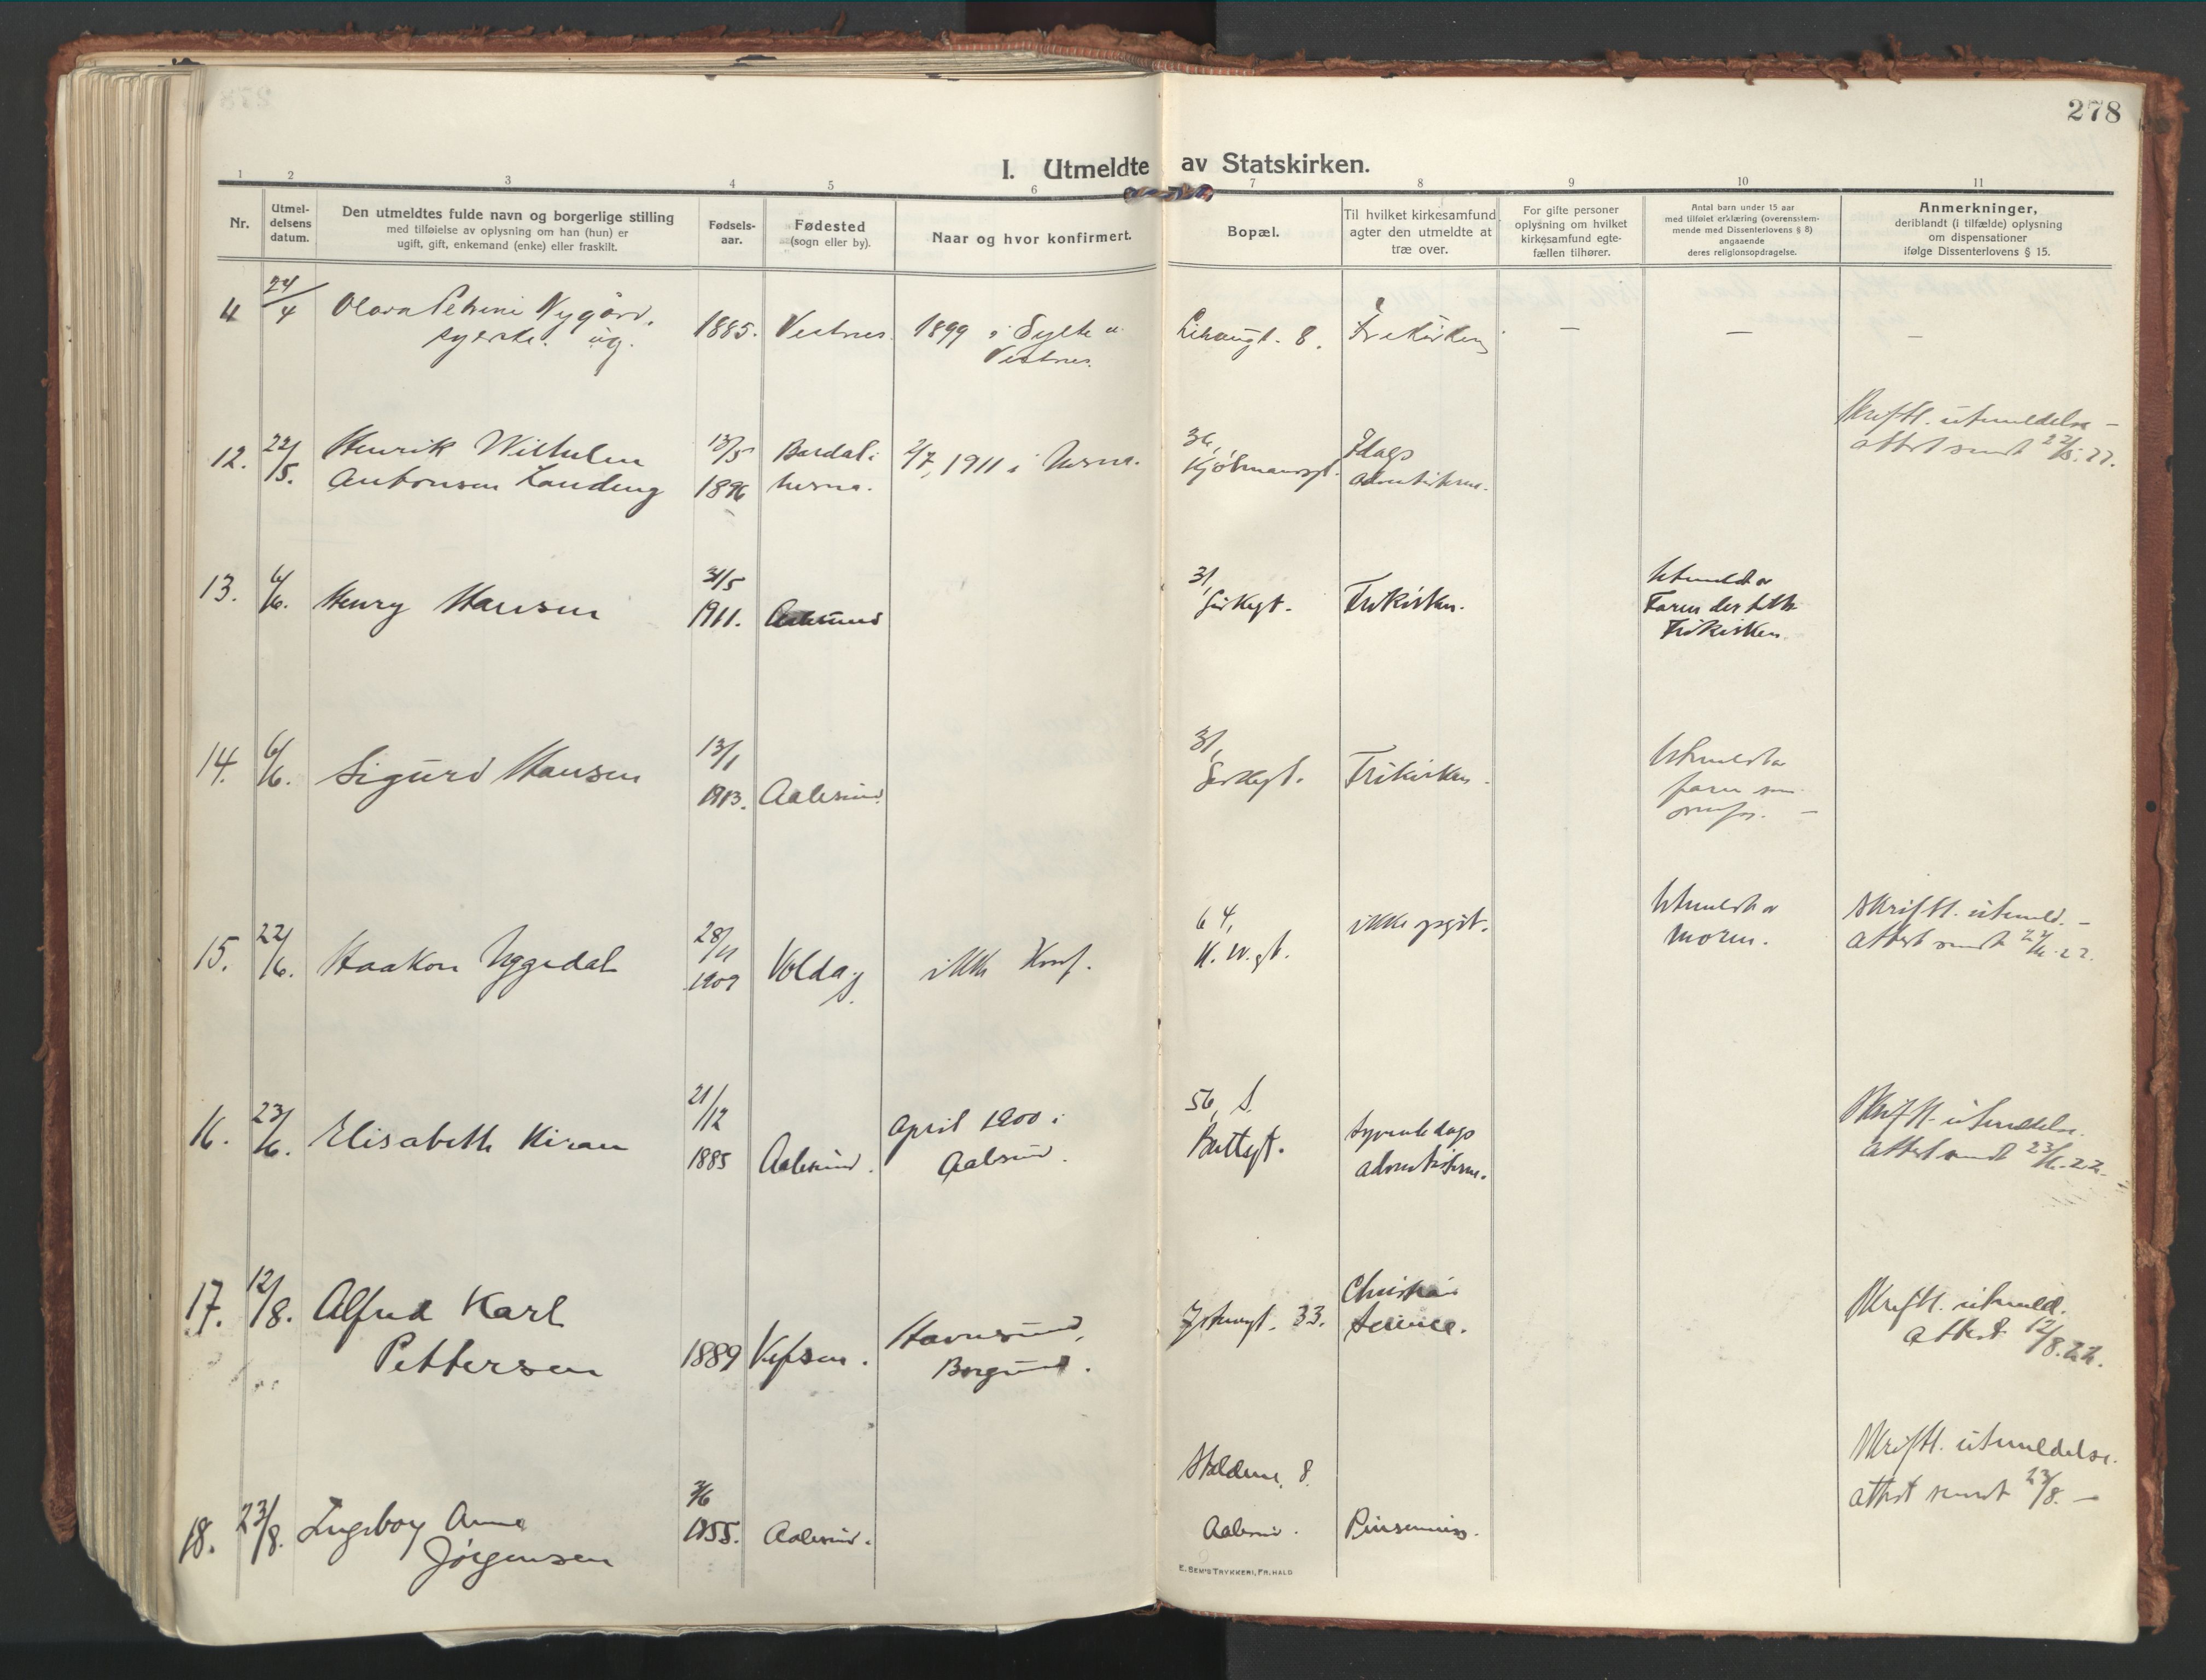 278
I. Utmeldte av Statskirken.
1 2 3 4 5 6 7 8 9 10 11
Nr.
Utmel-
delsens
datum.
Den utmeldtes fulde navn og borgerlige stilling
med tilføielse av oplysning om han (hun) er
ugift, gift, enkemand (enke) eller fraskilt.
Fødsels-
aar.
Fødested
(sogn eller by).
Naar og hvor konfirmert.
Bopæl.
Til hvilket kirkesamfund
agter den utmeldte at
træ over.
For gifte personer
oplysning om hvilket
kirkesamfund egte-
fællen tilhører.
Antal barn under 15 aar
med tilføiet erklæring (overensstem-
mende med Dissenterlovens § 8)
angaaende
deres religionsopdragelse.
Anmerkninger,
deriblandt (i tilfælde) oplysning
om dispensationer
ifølge Dissenterlovens § 15.
11 24/4 Olava Petrine Nygård, 1885. Vestnes 1899 i Sylte
syerske. ug. Vestnes. 8. Frikirken — — —
12. 22/5. Henrik Wilhelm 13/5 2/7, 1911 i 36, 7dags Skriftl. utmeldelse –
Antonsen 1896 Kjøbmannsgt. adventisterne. attest sendt 22/5.22.
13. 6/6. Henry Hansen 31/5 31, Utmeldt av
1911. Aalesund Frikirken. Faren der
Frikirken.
14. 6/6. Sigurd Hansen 13/1 31, Utmeldt av
1913. Aalesund Frikirken. faren som
ovenfor. –
15. 22/6. Haakon Yggedal 28/11 64, Utmeldt av Skriftl. utmeld. –
1909 Volda ikke Konf. K.W.gt. ikke opgit. moren. attest sendt 22/6.22.
16. 23/6. Elisabeth Kiran 21/12 april 1900 i 56, S. syvendedags Skriftl. utmeldelse.
1885 Aalesund. Aalesund. adventisterne. attest sendt 23/6.22.
17. 12/8. Alfred Karl Christian Skriftl. utmeld.
Pettersen 1889 Vefsen. Borgund. 33. Science. attest 12/8.22.
18. 23/8. Ingeborg Anne 3/6 8. Skriftl. utmeldelse.
Jørgensen 1855. Aalesund. Aalesund. Pinsemiss. attest sendt 23/8. –
E. SEM'S TRYKKERI, FR.HALD